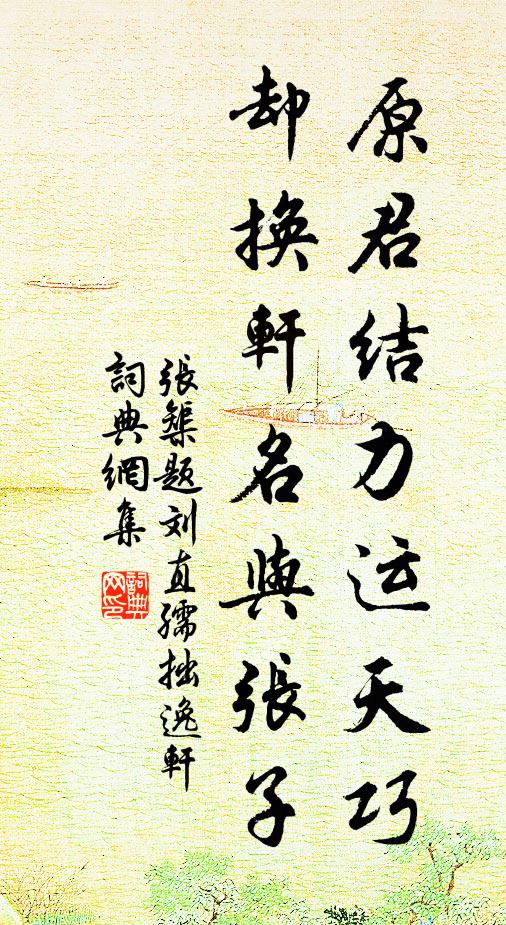 原君结力运天巧
却換軒名與張子
張榘题刘直孺拙逸軒
詞典網集
詞典网印